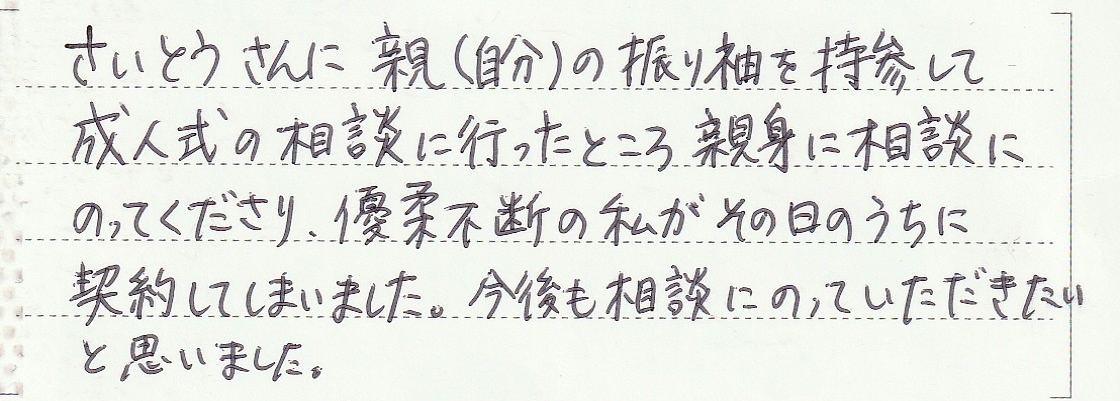 さいとうさんに 親(自分)の振り袖を持参して
成人式の相談に行ったところ親身に相談に
のってくださり、優柔不断の私がその日のうちに
契約してしまいました。今後も相談にのっていただきたい
と思いました。